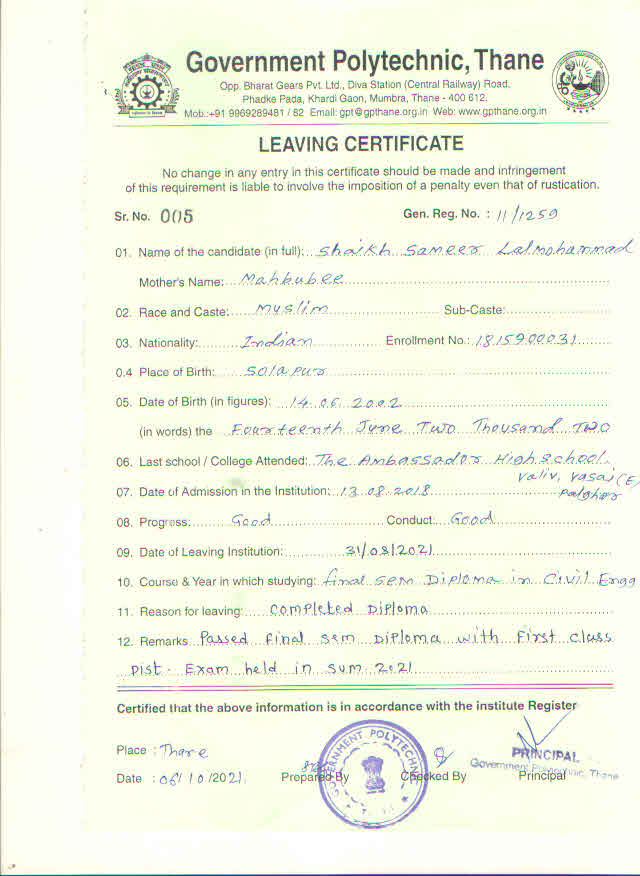 Government Polytechnic, Thane
Opp. Bharat Gears Pvt. Ltd., Diva Station (Central Railway) Road.
Phadke Pada, Khardi Gaon, Mumbra, Thane - 400 612.
Mob.:+91 9969289481 / 82 Email: gpt@gpthane.org.in Web: www.gpthane.org.in
LEAVING CERTIFICATE
No change in any entry in this certificate should be made and infringement
of this requirement is liable to involve the imposition of a penalty even that of rustication.
Sr. No. 005 Gen. Reg. No. : 11/1259
01. Name of the candidate (in full): Shaikh Sameer Lalmohammad
Mother's Name: Mahbubee
02. Race and Caste: Muslim Sub-Caste:
03. Nationality: Indian Enrollment No.: 1815900031
0.4 Place of Birth: Solapur
05. Date of Birth (in figures): 14.06.2002
(in words) the Fourteenth June Two Thousand Two
06. Last school / College Attended: The Ambassador High school.
Valiv, Vasai (E)
07. Date of Admission in the Institution: 13.08.2018 Palghar
08. Progress: Good Conduct: Good
09. Date of Leaving Institution: 31/08/2021
10. Course & Year in which studying: final sem Diploma in Civil Engg
11. Reason for leaving: Completed Diploma
12. Remarks Passed final sem Diploma with First class
Dist. Exam held in sum 2021
Certified that the above information is in accordance with the institute Register
Place : Thane
PRINCIPAL
Government Polytechnic, Thane
Date : 06/10/2021. Prepared By Checked By Principal
GOVERNMENT POLYTECHNIC